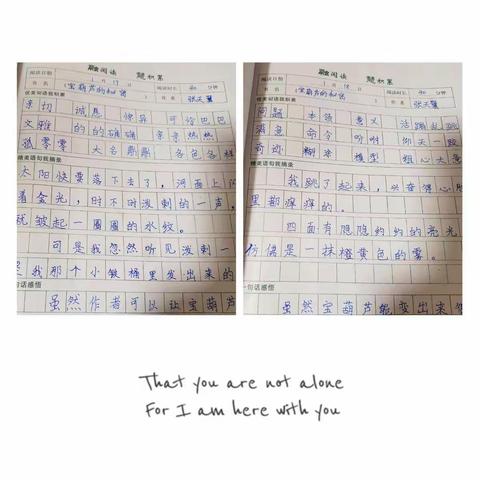 融阅读 随积累
阅读日期 1月17日 阅读时长 40 分钟
书名 《宝葫芦的秘密》 作者 张天翼
优美词语我积累
亲切 诚恳 惊异 可怜巴巴
文雅 的的确确 亲亲热热
孤零零 大名鼎鼎 各色各样
精美语句我摘录
太阳快要落下去了，河面上闪
着金光，时不时泼剌的一声，
就皱起一圈圈的水纹。
可是我忽然听见泼剌一
我那个小铁桶里发出来的
句话感悟
虽然作者可以让宝葫芦
融阅读 随积累
阅读日期 1月18日 阅读时长 40 分钟
书名 《宝葫芦的秘密》 作者 张天翼
优美词语我积累
问题 本领 意义 活蹦乱跳
命令 吩咐 仰天一跤
奇迹 糊涂 模型 粗心大意
精美语句我摘录
我跳了起来，兴奋得心
里都痒痒的。
四面有隐隐约约的亮光
仿佛是一抹橙黄色的雾。
一句话感悟
虽然宝葫芦能变出来
That you are not alone
For I am here with you